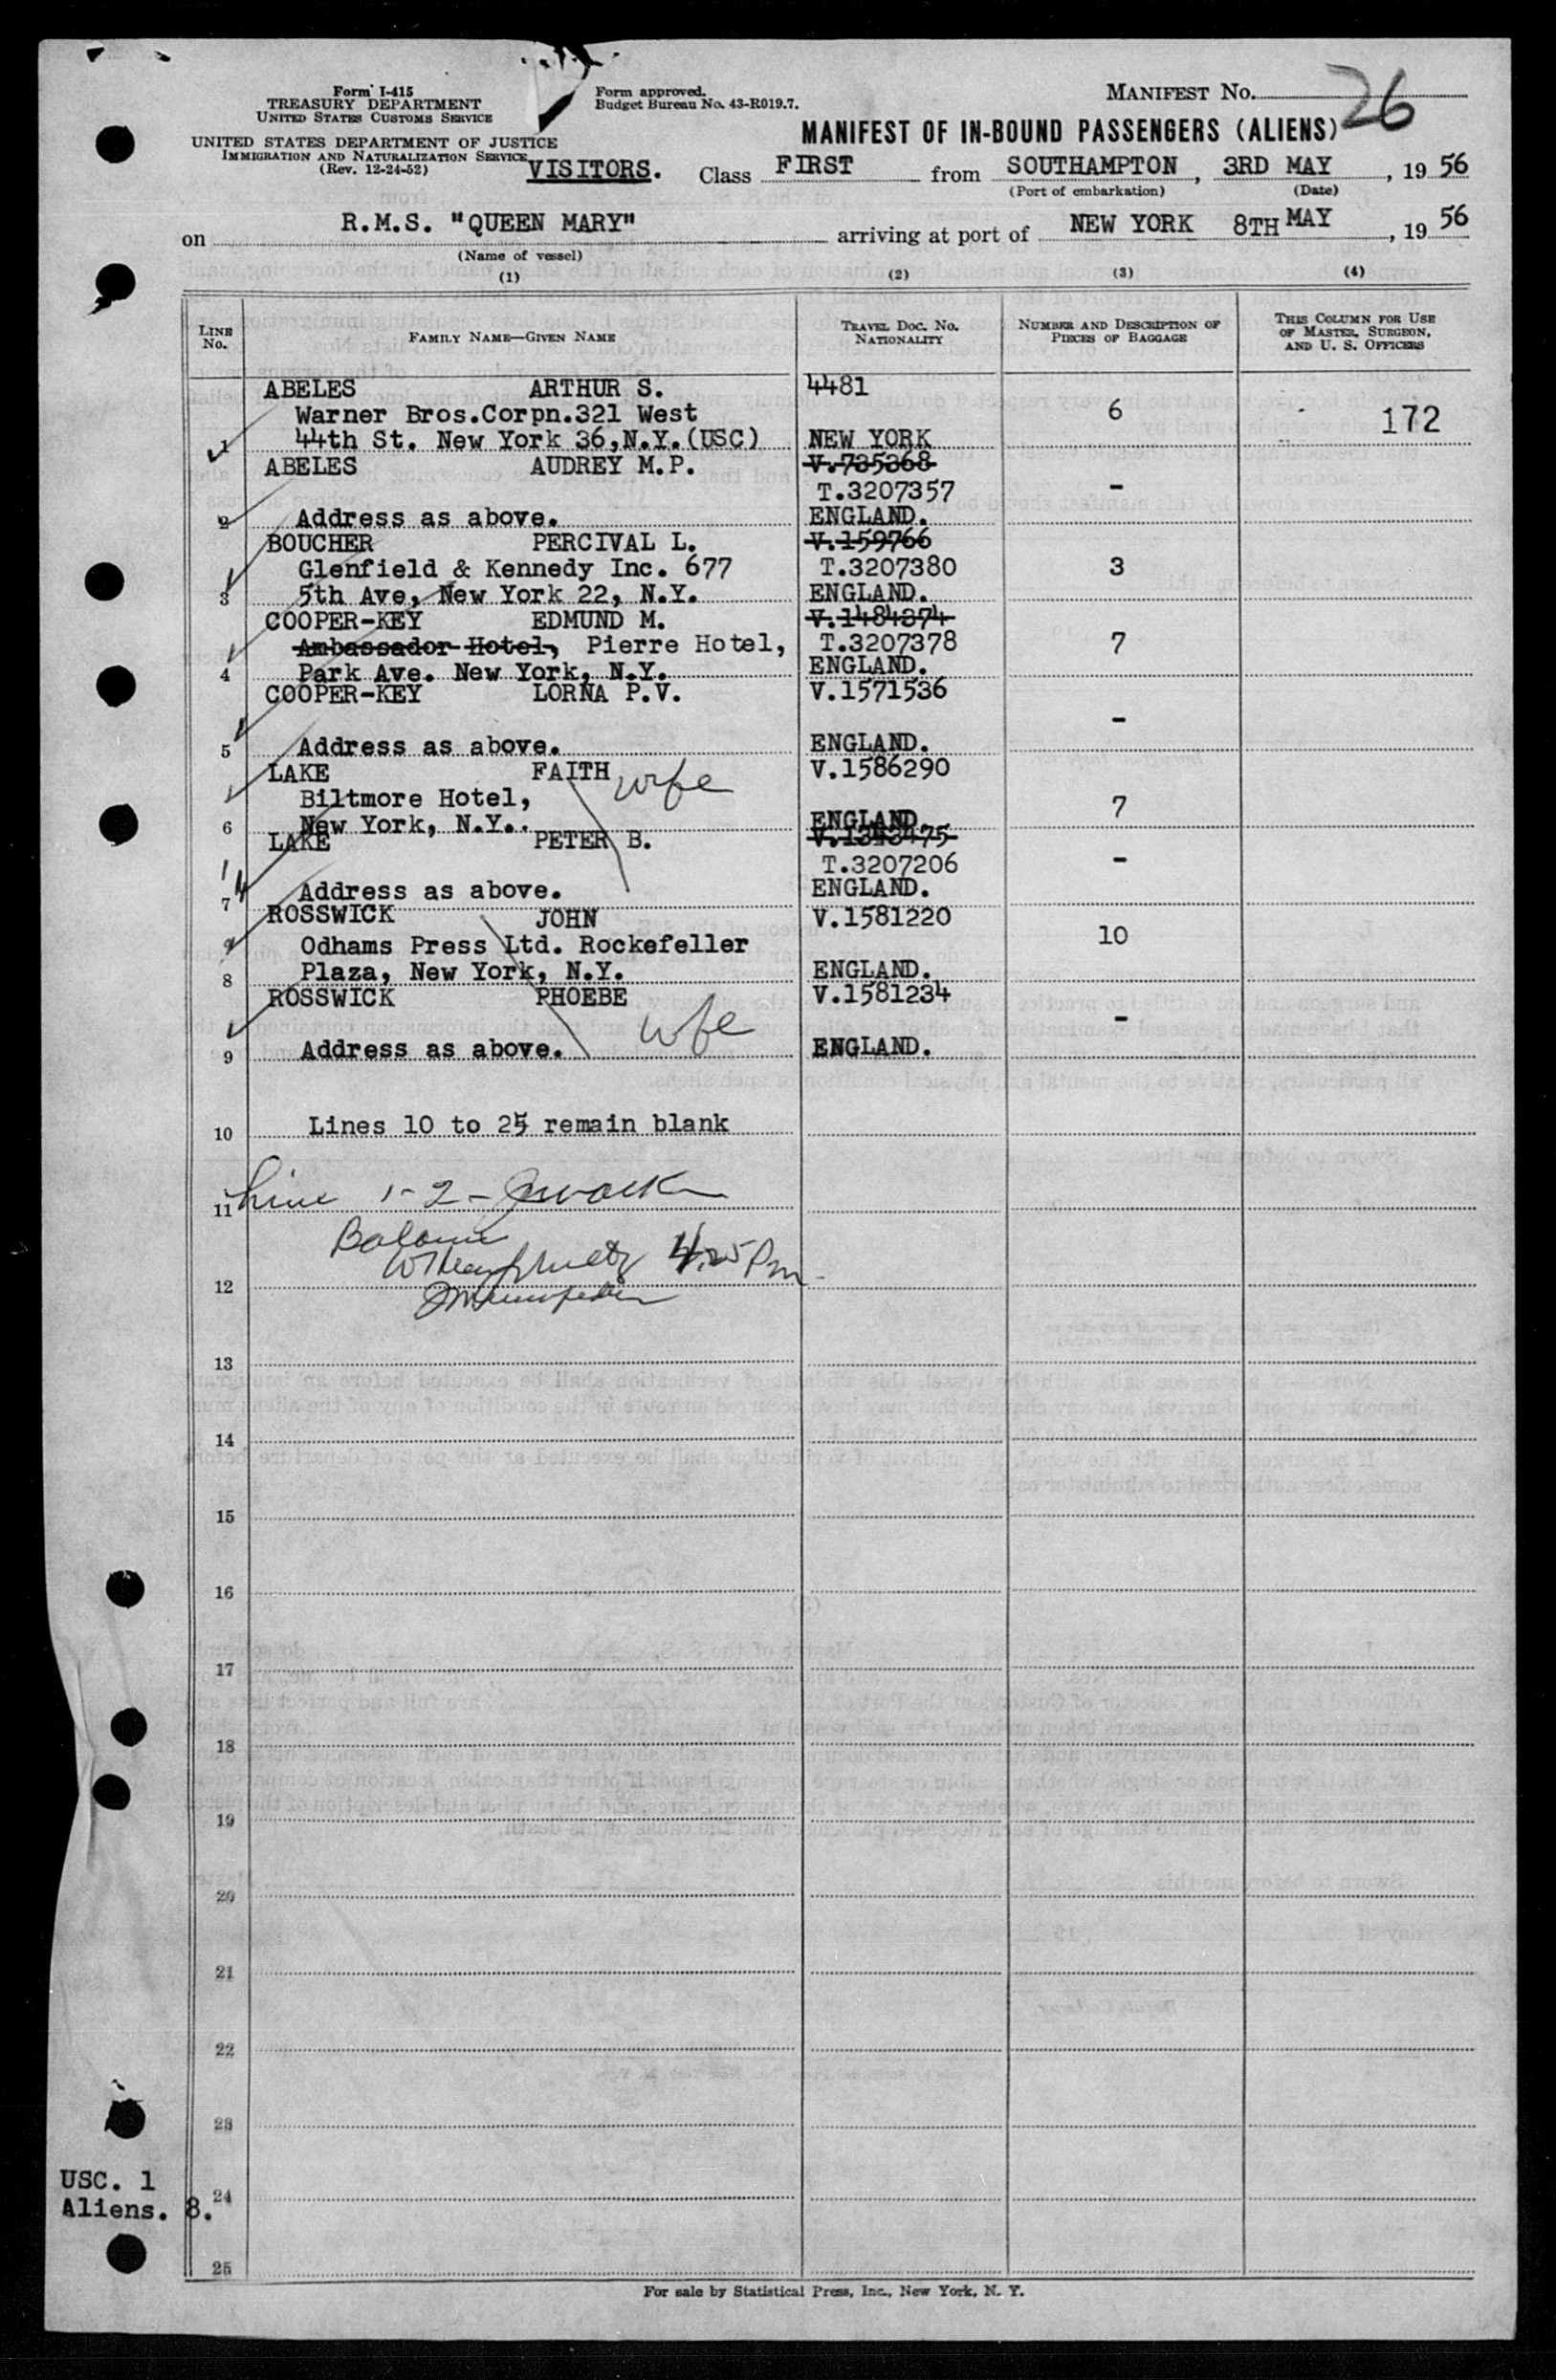 Form I-415
TREASURY DEPARTMENT
UNITED STATES CUSTOMS SERVICE
UNITED STATES DEPARTMENT OF JUSTICE
IMMIGRATION AND NATURALIZATION SERVICE
(Rev. 12-24-52)
Form approved.
Budget Bureau No. 43-R019.7.
MANIFEST NO. 26
MANIFEST OF IN-BOUND PASSENGERS (ALIENS)
VISITORS. Class FIRST from SOUTHAMPTON, 3RD MAY, 19 56
(Port of embarkation) (Date)
on R.M.S. "QUEEN MARY" arriving at port of NEW YORK 8TH MAY, 19 56
(Name of vessel)
(1) (2) (3) (4)
LINE No. FAMILY NAME—GIVEN NAME TRAVEL DOC. NO. NATIONALITY NUMBER AND DESCRIPTION OF PIECES OF BAGGAGE THIS COLUMN FOR USE OF MASTER, SURGEON, AND U. S. OFFICERS
ABELES ARTHUR S. 4481
Warner Bros.Corpn.321 West 6 172
1 44th St. New York 36,N.Y.(USC) NEW YORK
ABELES AUDREY M.P. V.735368
T.3207357 -
2 Address as above. ENGLAND.
BOUCHER PERCIVAL L. V.159766
Glenfield & Kennedy Inc. 677 T.3207380 3
3 5th Ave, New York 22, N.Y. ENGLAND.
COOPER-KEY EDMUND M. V.1484374
Ambassador Hotel, Pierre Hotel, T.3207378 7
4 Park Ave. New York, N.Y. ENGLAND.
COOPER-KEY LORNA P.V. V.1571536
-
5 Address as above. ENGLAND.
LAKE FAITH wife V.1586290
Biltmore Hotel, 7
6 New York, N.Y.. ENGLAND.
LAKE PETER B. V.1343475
T.3207206 -
7 Address as above. ENGLAND.
ROSSWICK JOHN V.1581220
Odhams Press Ltd. Rockefeller 10
8 Plaza, New York, N.Y. ENGLAND.
ROSSWICK PHOEBE V.1581234
wfe -
9 Address as above. ENGLAND.
10 Lines 10 to 25 remain blank
11 Line 1-2-
Balance
4.25 Pm
12
13
14
15
16
17
18
19
20
21
22
23
24
25
USC. 1
Aliens. 8.
For sale by Statistical Press, Inc., New York, N. Y.